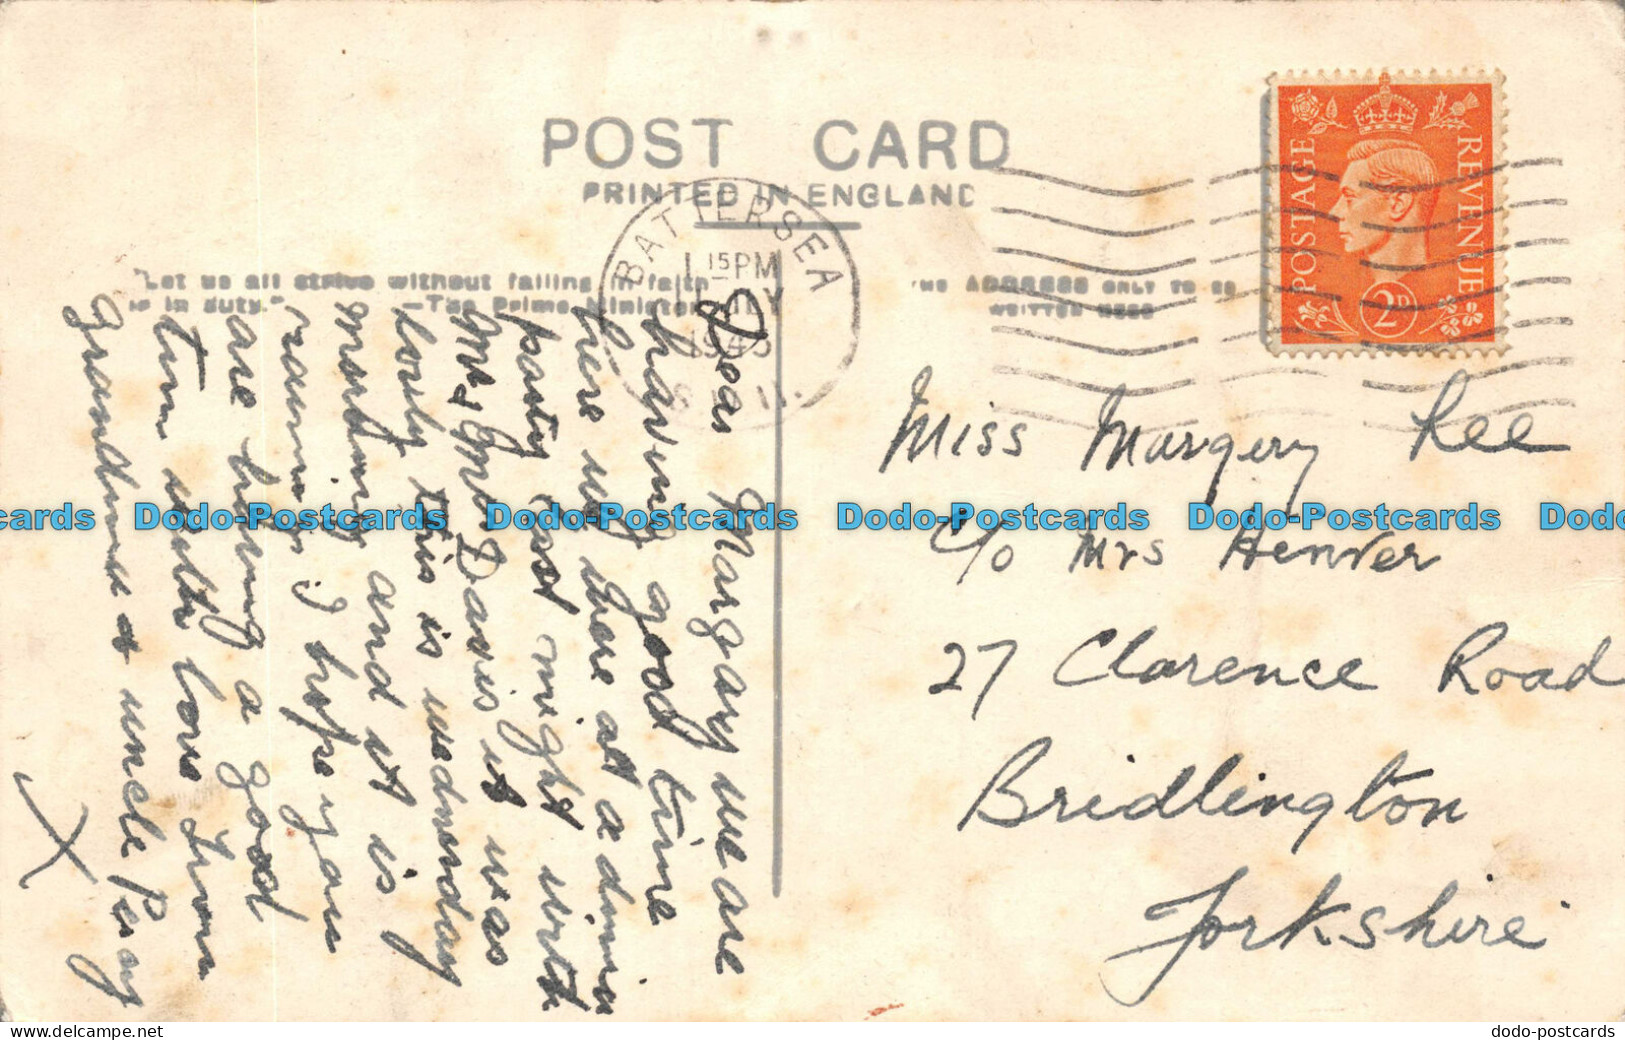 POST CARD
PRINTED IN ENGLAND
"Let us all strive without failing in faith
or in duty."
—The Prime Minister
THE ADDRESS ONLY TO BE
WRITTEN HERE
BATTERSEA
1 15 PM
JLY
1945
S.W.11.
POSTAGE
REVENUE
2D
Dear Margary we are
having good time
here we were at a dinner
party last night with
Mr & Mrs Davis it was
lovly this is wednesday
morning and it is
raining I hope you
are having a good
time with love from
Grandma & uncle Percy
X
Miss Margery Lee
c/o Mrs Henver
27 Clarence Road
Bridlington
Yorkshire
Dodo-Postcards Dodo-Postcards Dodo-Postcards Dodo-Postcards
www.delcampe.net
dodo-postcards